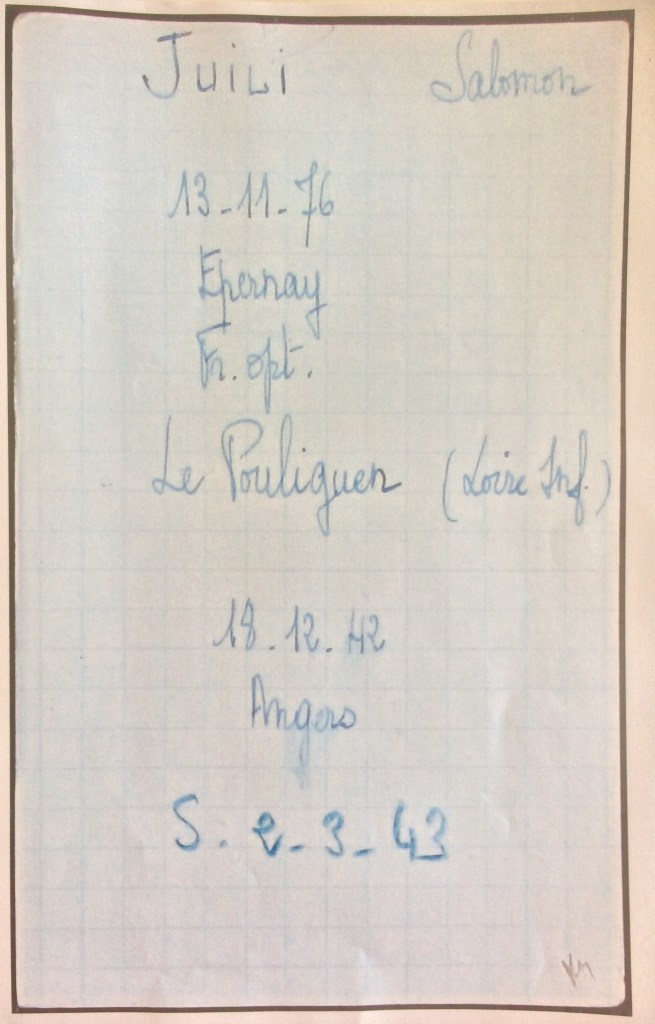 JUILI Salomon
13-11-76
Epernay
Fr. opt.
Le Pouliguen (Loire Inf.)
18.12.42
Angers
S. 2-3-43